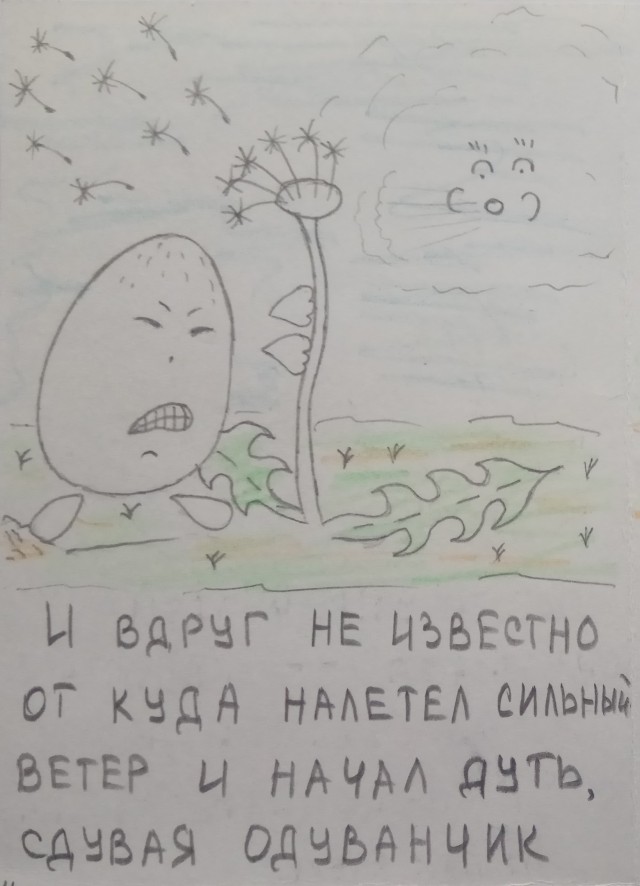 И ВДРУГ НЕ ИЗВЕСТНО
ОТ КУДА НАЛЕТЕЛ СИЛЬНЫЙ
ВЕТЕР И НАЧАЛ ДУТЬ,
СДУВАЯ ОДУВАНЧИК